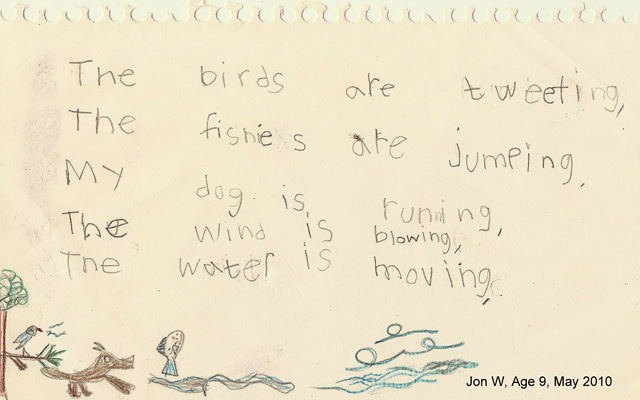 The birds are tweeting,
The fishies are jumping,
My dog is running,
The wind is blowing,
The water is moving.
Jon W, Age 9, May 2010